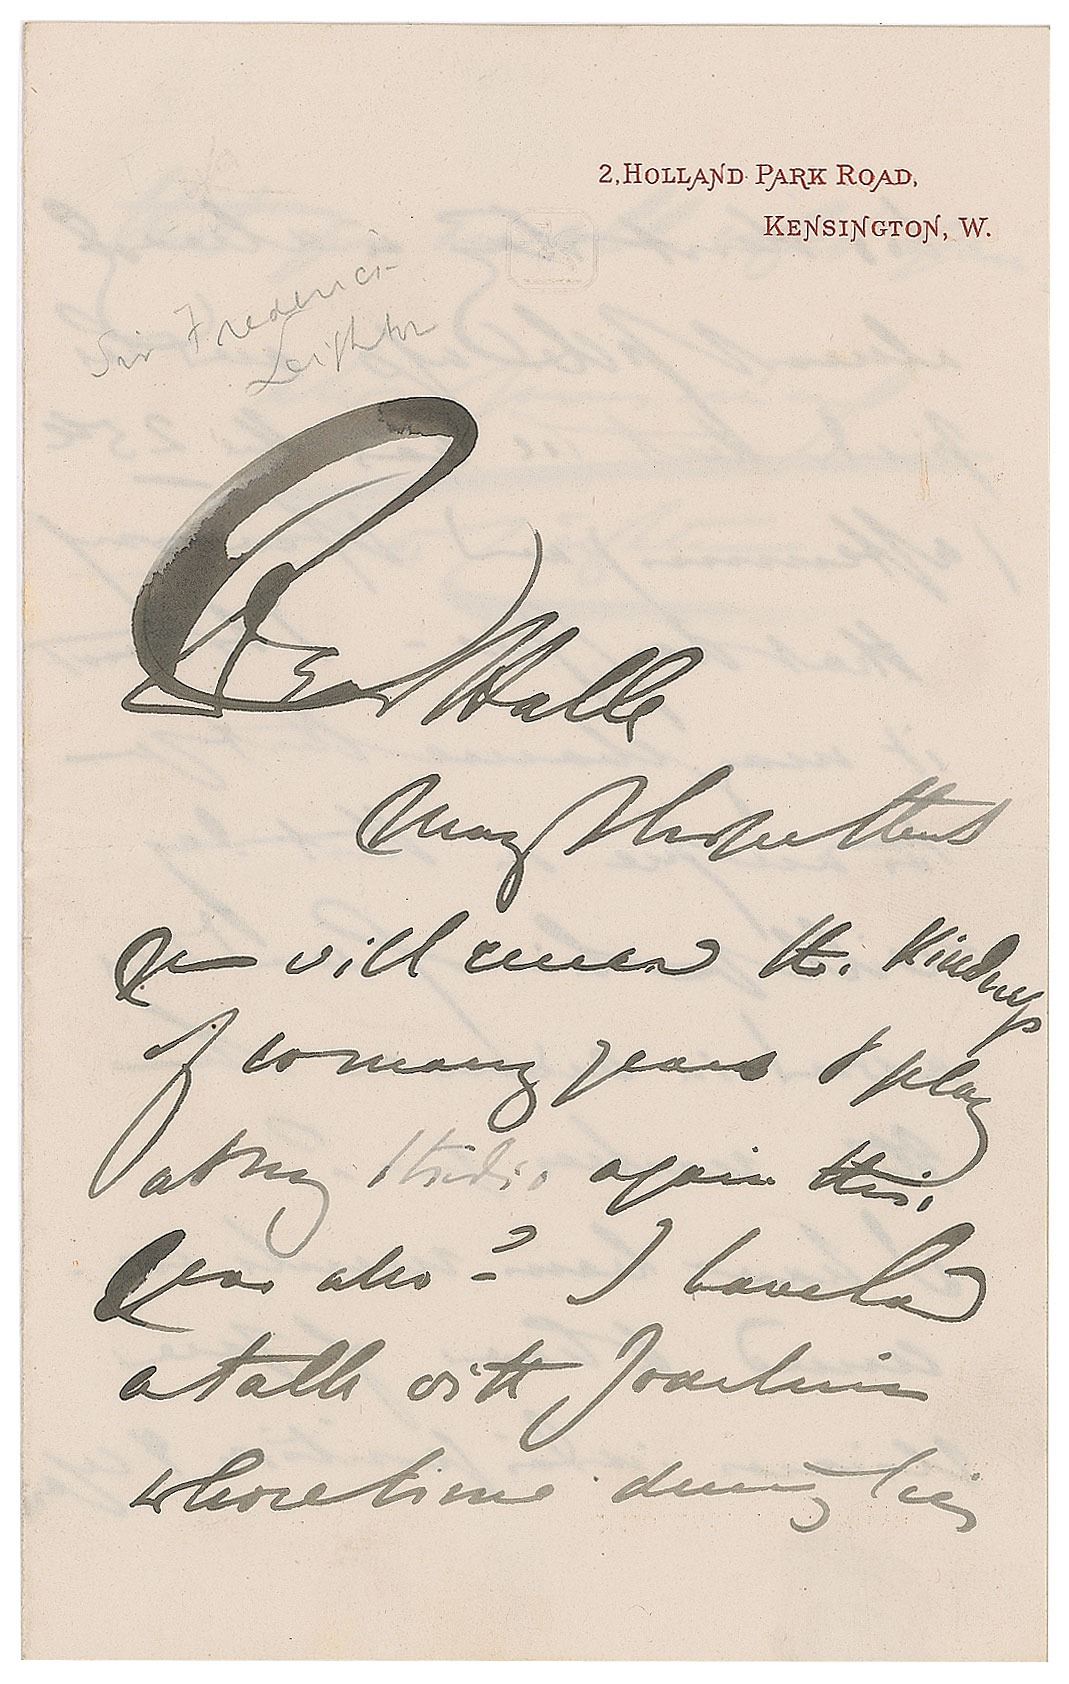 2, Holland Park Road,
Kensington, W.
Sir Frederick
Leighton
Dear Halle
May I hope that
you will renew the kindness
of so many years & play
at my studio again this
year also? I have had
a talk with Joachim
whose time during his